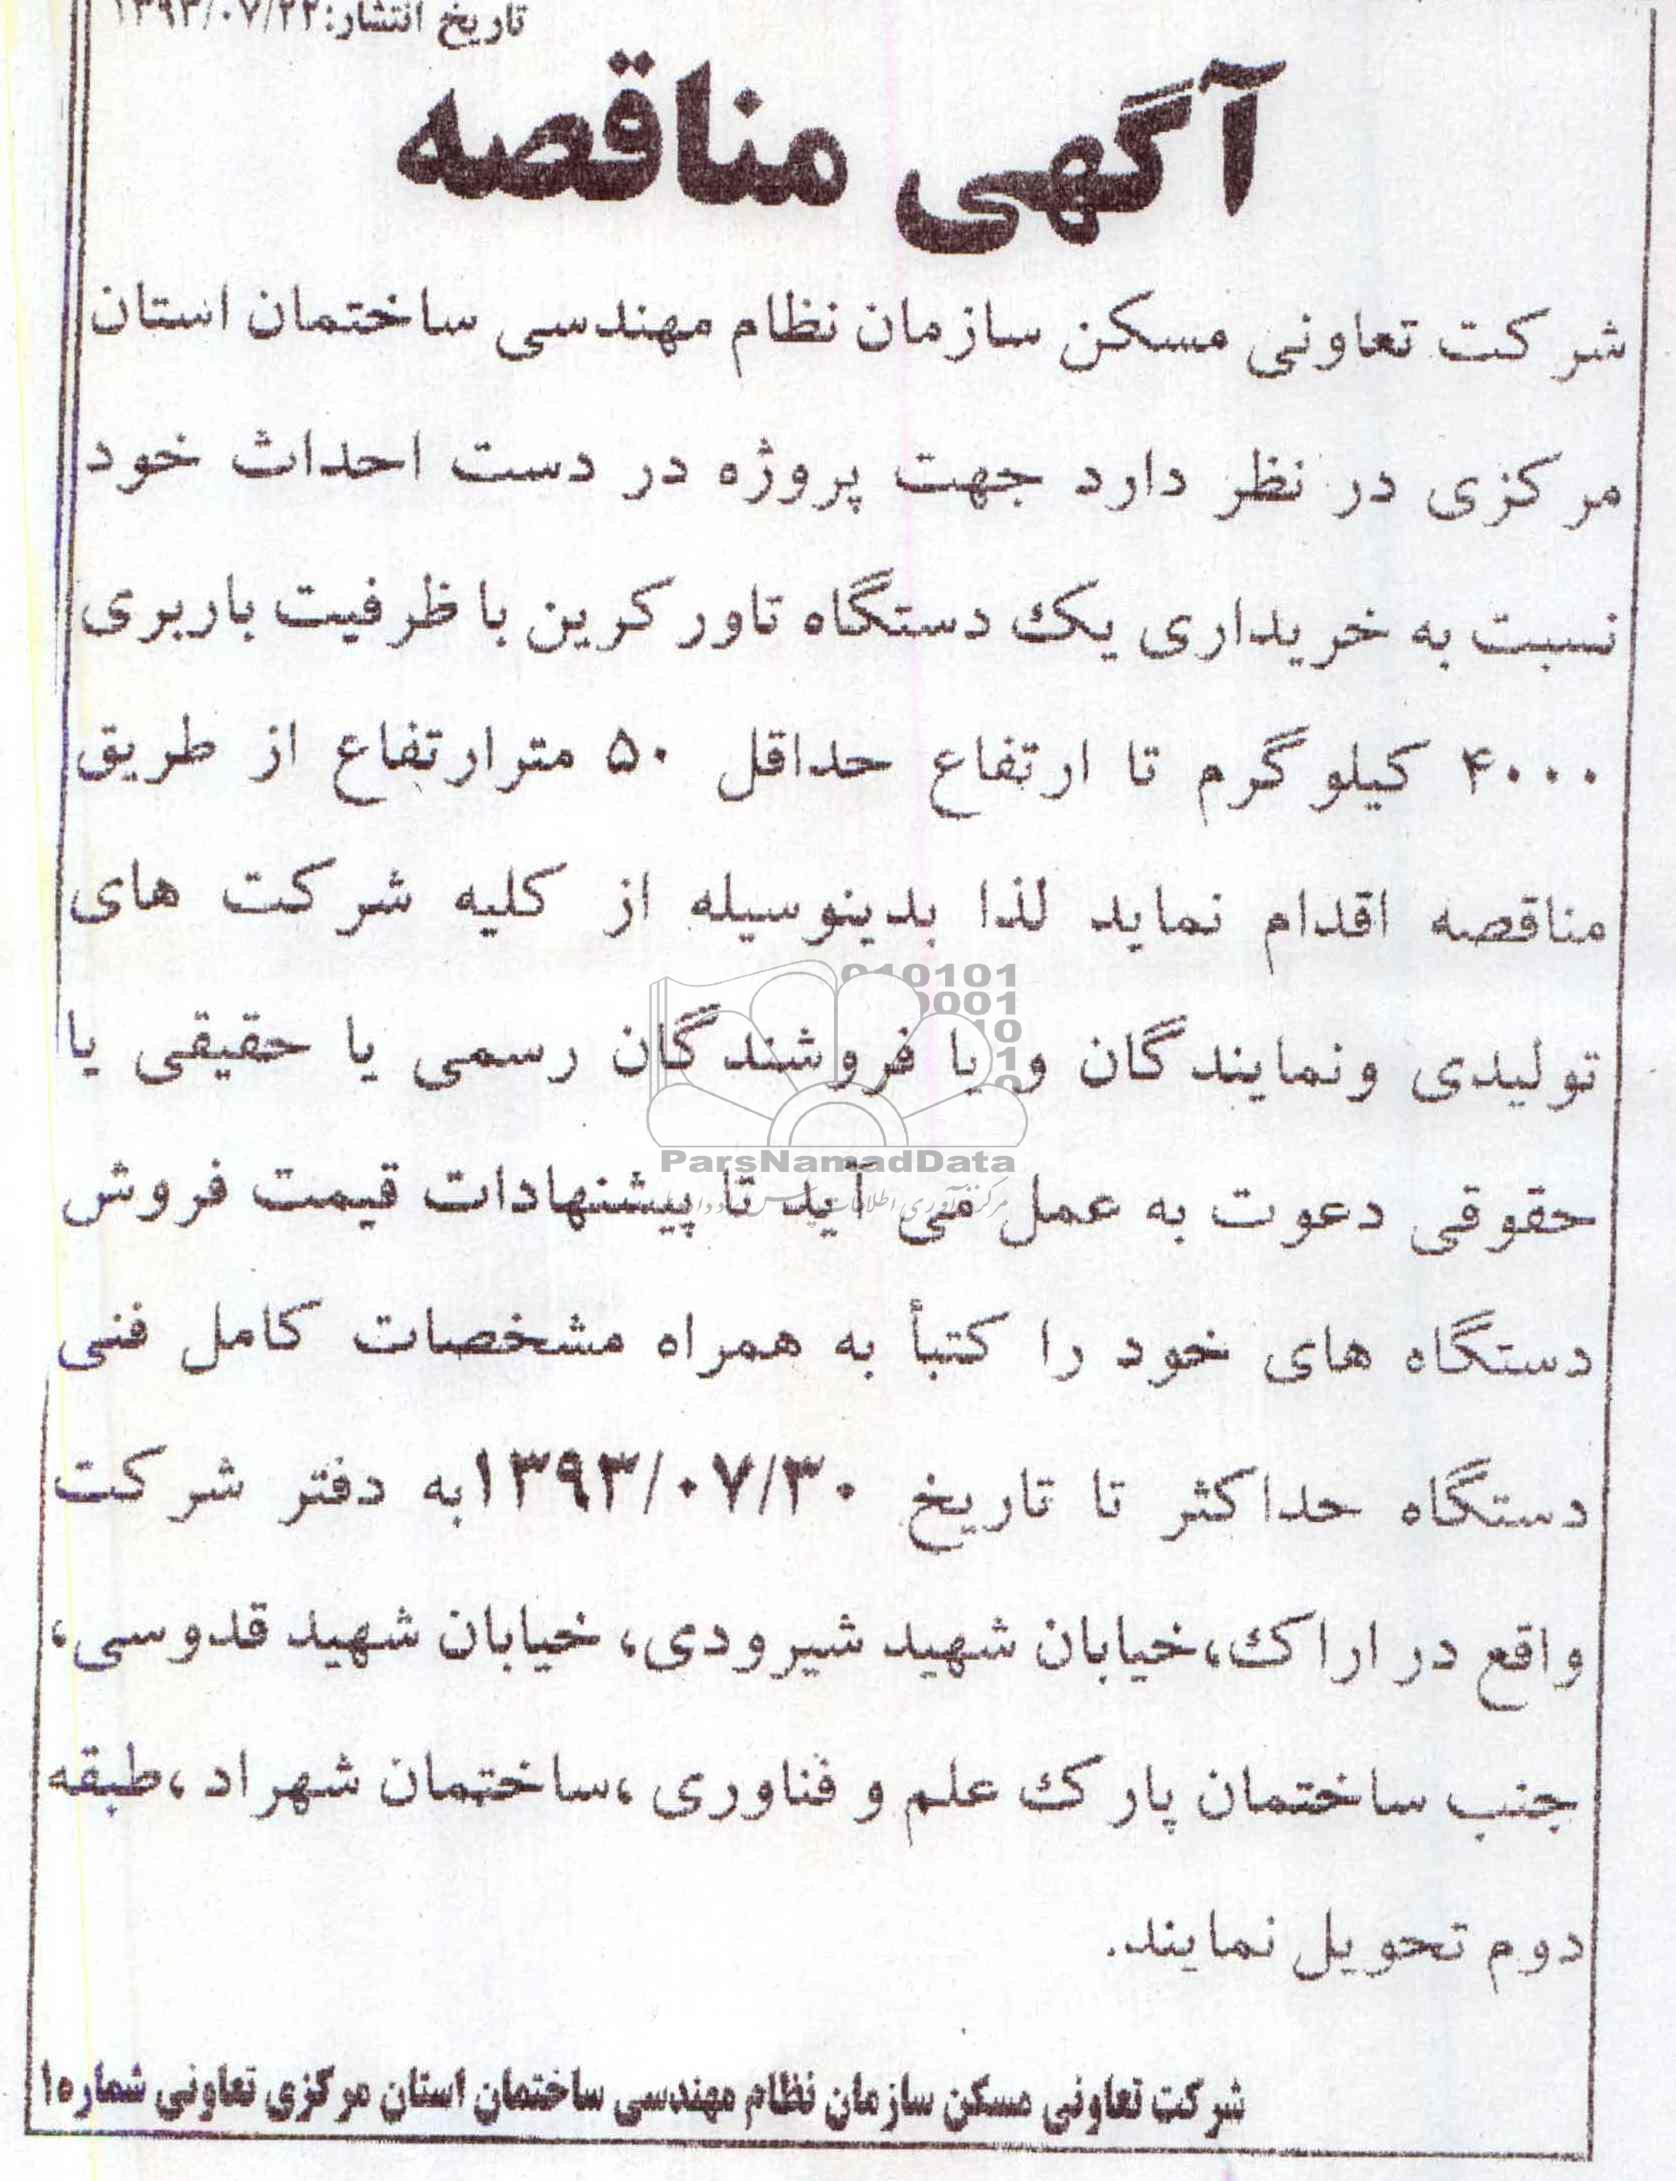 تاریخ انتشار: ۱۳۹۳/۰۷/۲۲
آگهی مناقصه
شرکت تعاونی مسکن سازمان نظام مهندسی ساختمان استان
مرکزی در نظر دارد جهت پروژه در دست احداث خود
نسبت به خریداری یک دستگاه تاورکرین با ظرفیت باربری
۴۰۰۰ کیلوگرم تا ارتفاع حداقل ۵۰ مترارتفاع از طریق
مناقصه اقدام نماید لذا بدینوسیله از کلیه شرکت های
تولیدی ونمایندگان و یا فروشندگان رسمی یا حقیقی یا
حقوقی دعوت به عمل می آید تا پیشنهادات قیمت فروش
دستگاه های خود را کتبأ به همراه مشخصات کامل فنی
دستگاه حداکثر تا تاریخ ۱۳۹۳/۰۷/۳۰به دفتر شرکت
واقع در اراک،خیابان شهید شیرودی، خیابان شهید قدوسی،
جنب ساختمان پارک علم و فناوری ،ساختمان شهراد ،طبقه
دوم تحویل نمایند.
شرکت تعاونی مسکن سازمان نظام مهندسی ساختمان استان مرکزی تعاونی شماره۱
ParsNamadData